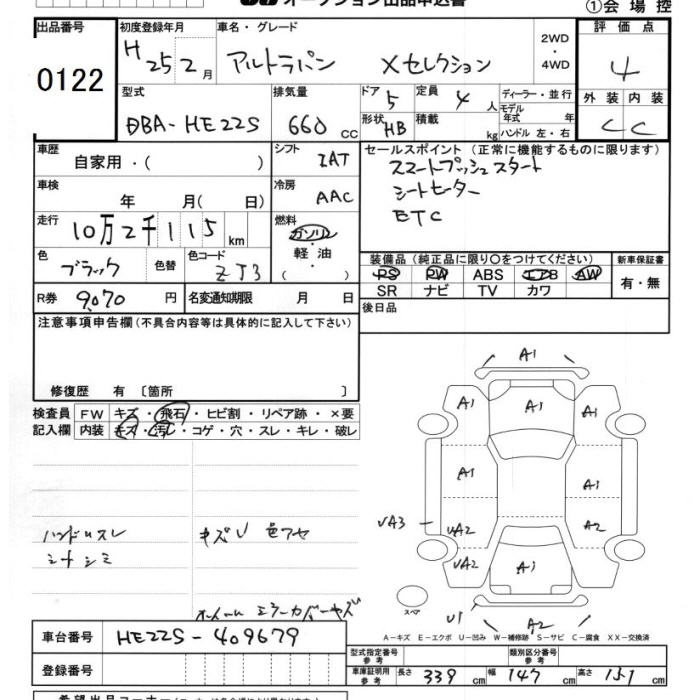 オークション出品申込書
①会場控
出品番号 初度登録年月 車名・グレード 2WD・4WD 評価点
0122 H 25 2月 アルトラパン Xセレクション 4
型式 排気量 ドア 5 定員 4 人 ディーラー・並行 外装 内装
DBA-HE22S 660 cc 形状 HB 積載 kg モデル年式 年 C C
ハンドル 左・右
車歴 自家用・( ) シフト IAT セールスポイント (正常に機能するものに限ります)
スマートプッシュスタート
シートヒーター
ETC
車検 年 月( 日) 冷房 AAC
走行 10万2千115 km 燃料 ガソリン・軽油・( )
色 ブラック 色替 色コード ZJ3
装備品 (純正品に限り○をつけてください) 新車保証書
PS PW ABS エアB AW 有・無
SR ナビ TV カワ
R券 9,070 円 名変通知期限 月 日 後日品
注意事項申告欄(不具合内容等は具体的に記入して下さい)
修復歴 有 〔箇所 〕
検査員 FW キズ・飛石・ヒビ割・リペア跡・×要
記入欄 内装 キズ・汚レ・コゲ・穴・スレ・キレ・破レ
A1
A1 A1 A1
A1 A1
UA3 UA2 A2
UA2 A1
スペア U1 A2
ハンドルスレ キズU 色アセ
シートシミ
ホイール ミラーカバーキズ
A-キズ E-エクボ U-凹み W-補修跡 S-サビ C-腐食 XX-交換済
車台番号 HE22S-409679
登録番号
型式指定番号 参考 類別区分番号 参考
車庫証明用 参考 長さ 339 cm 幅 147 cm 高さ 151 cm